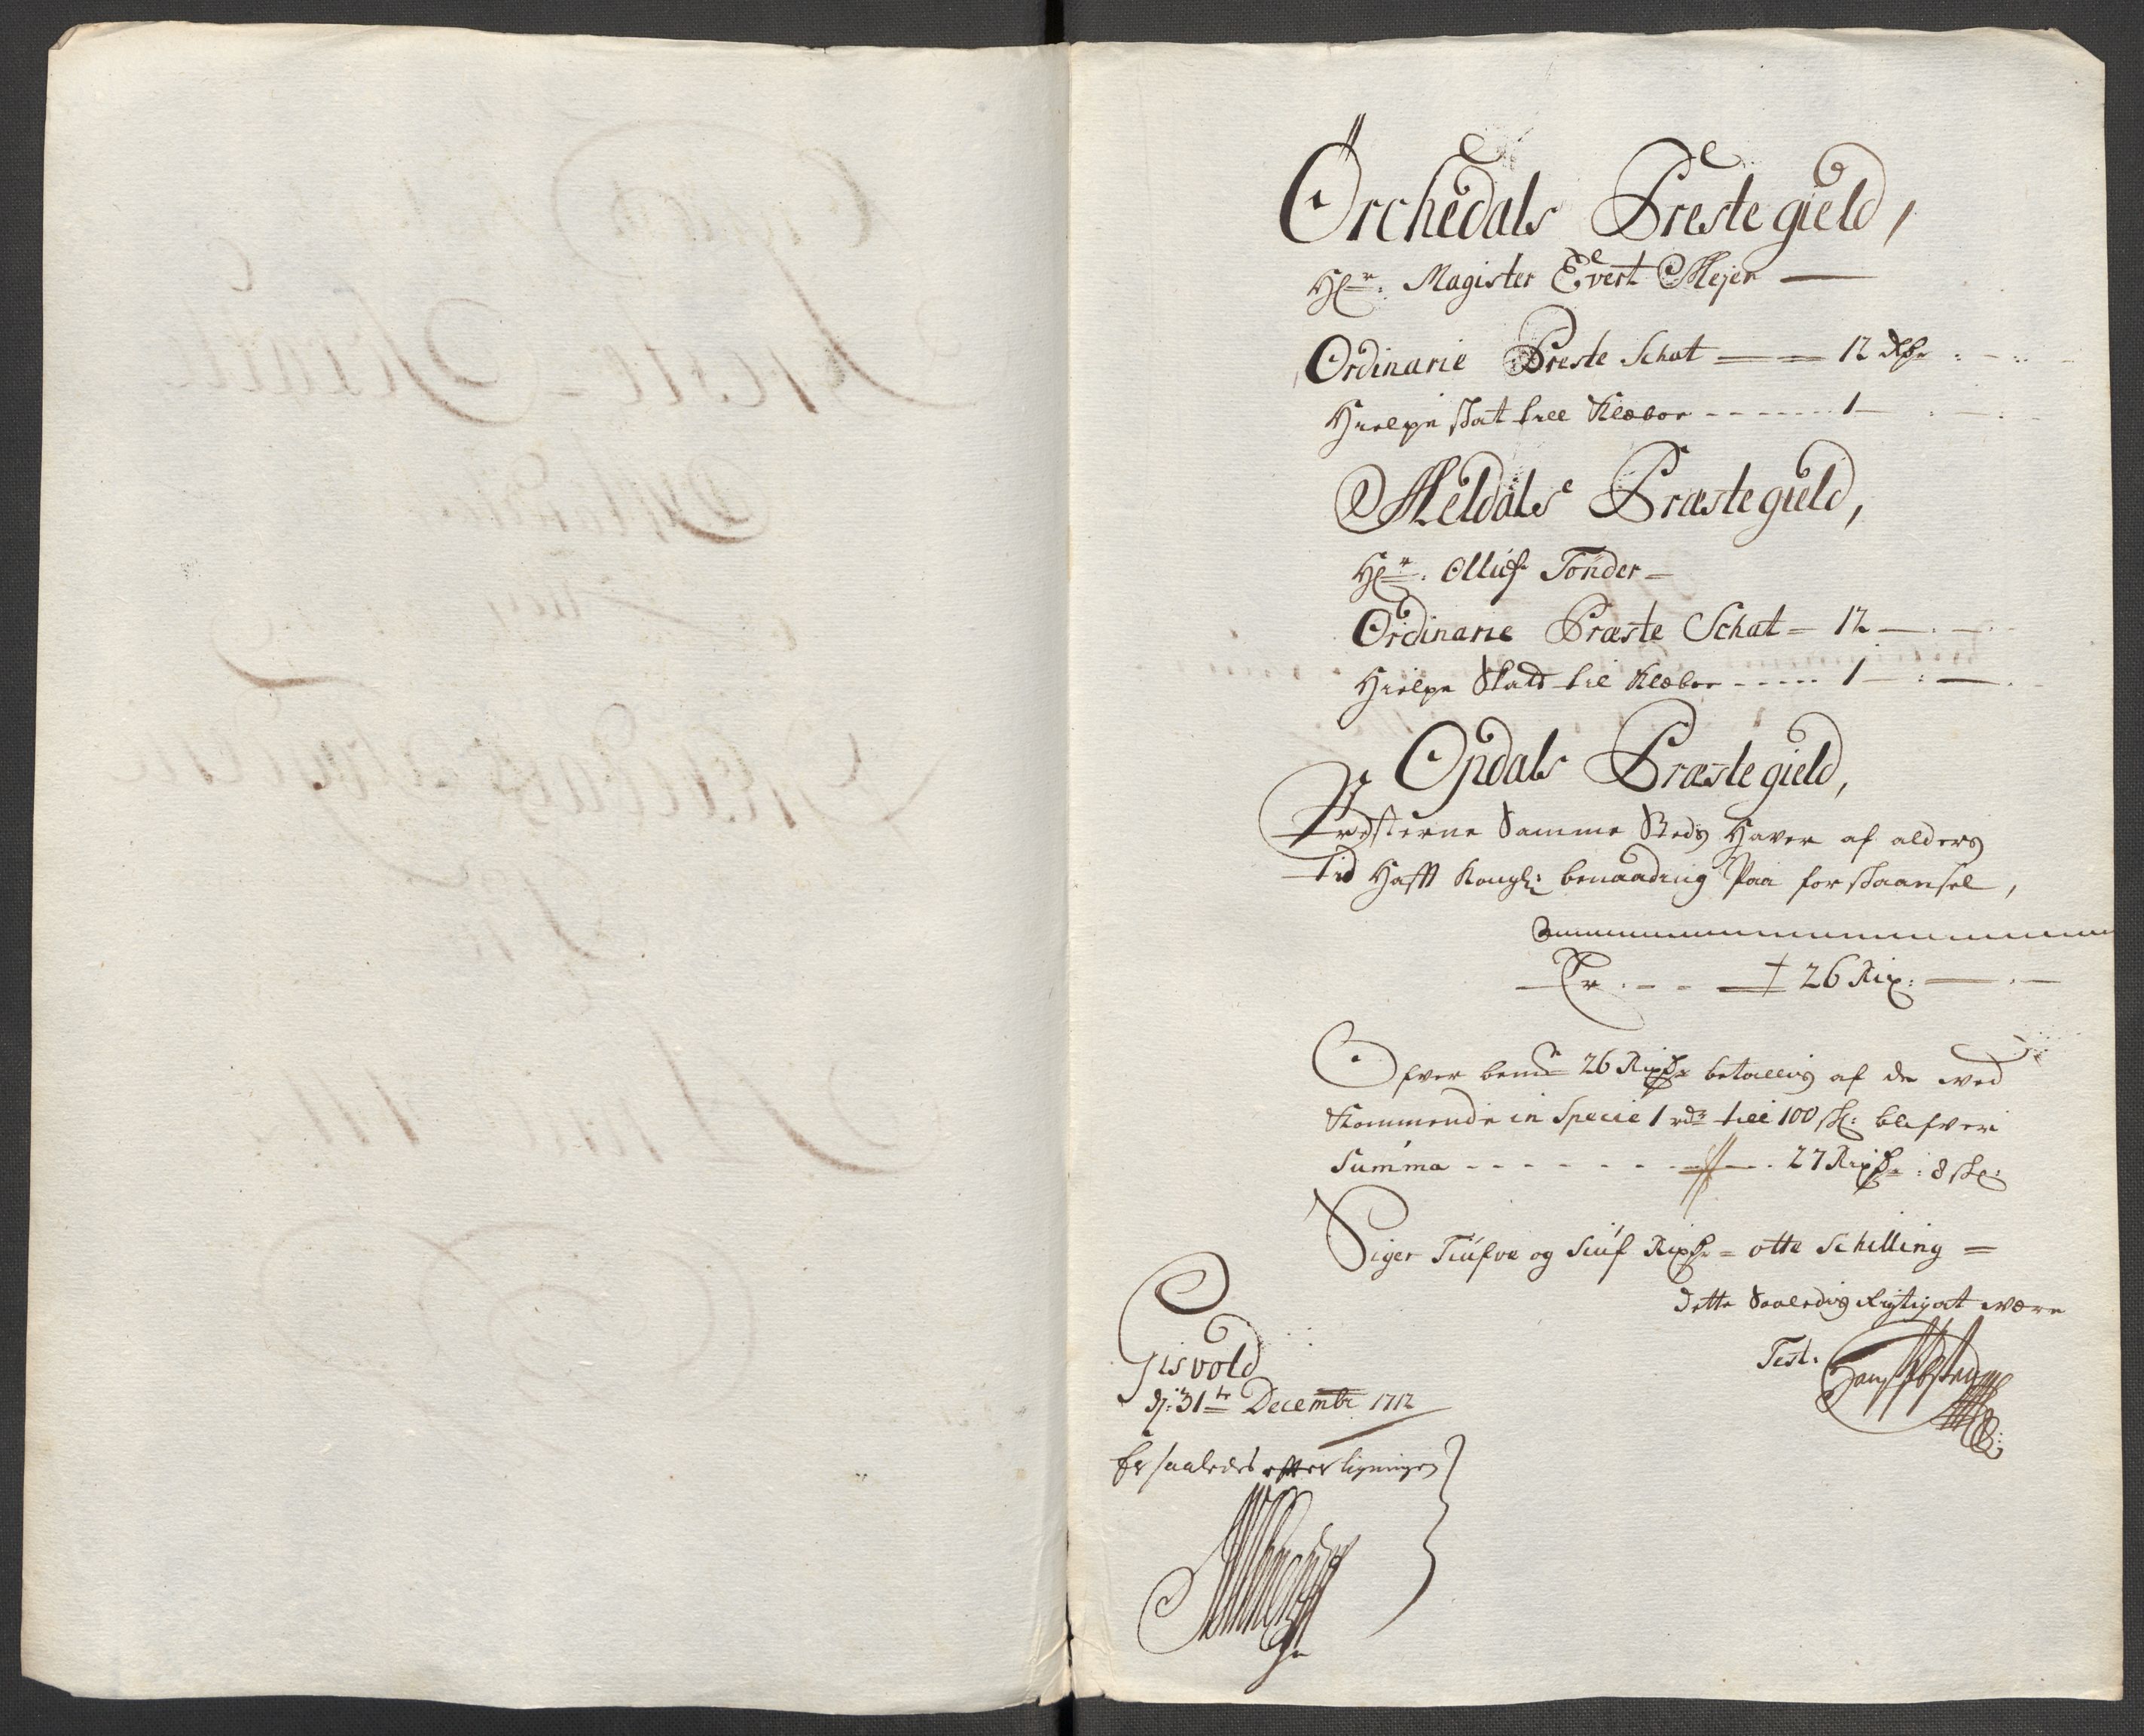 Orchedals Preste gield,
Hr. Magister Evert Mejer
Ordinarie Preste Schat 12 Rdr
Hielpe skat till Klæboe - - - - - - - 1
Meldals Præstegield,
Hr. Olluf Tønder
Ordinarie Præste Schat 12
Hielpe Skatt til Klæboe - - - - - 1
Opdals Præstegield,
Præsterne Samme Steds Hawer af alders
Tid Hafft Kongl: benaading Paa forskaansel,
Er - - - 26 Rix:
Ofver bemte 26 Rixdr betallis af de wed
Kommende in Specie 1 rdr till 100 sk: blifver
Summa - - - - - - - 27 Rixdr : 8 sk:
Siger Tiufve og Siuf Rixdr = otte Schilling =
Dette Saaledis Rigtig at wære
Test:
Gisvold
dj: 31te Decembr 1712
Er saaledes efter ligningen